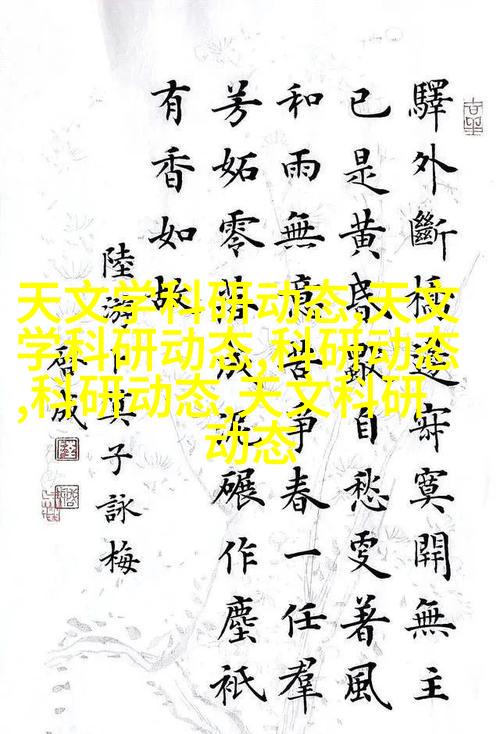 驛外斷橋邊寂寞開無主
已是黃昏獨自愁更著風
和雨無意苦爭春一任羣
芳妬零落成泥碾作塵祇
有香如故
陸游卜算子詠梅
天文学科研动态,天文
学科研动态,科研动态
,科研动态,天文科研
动态